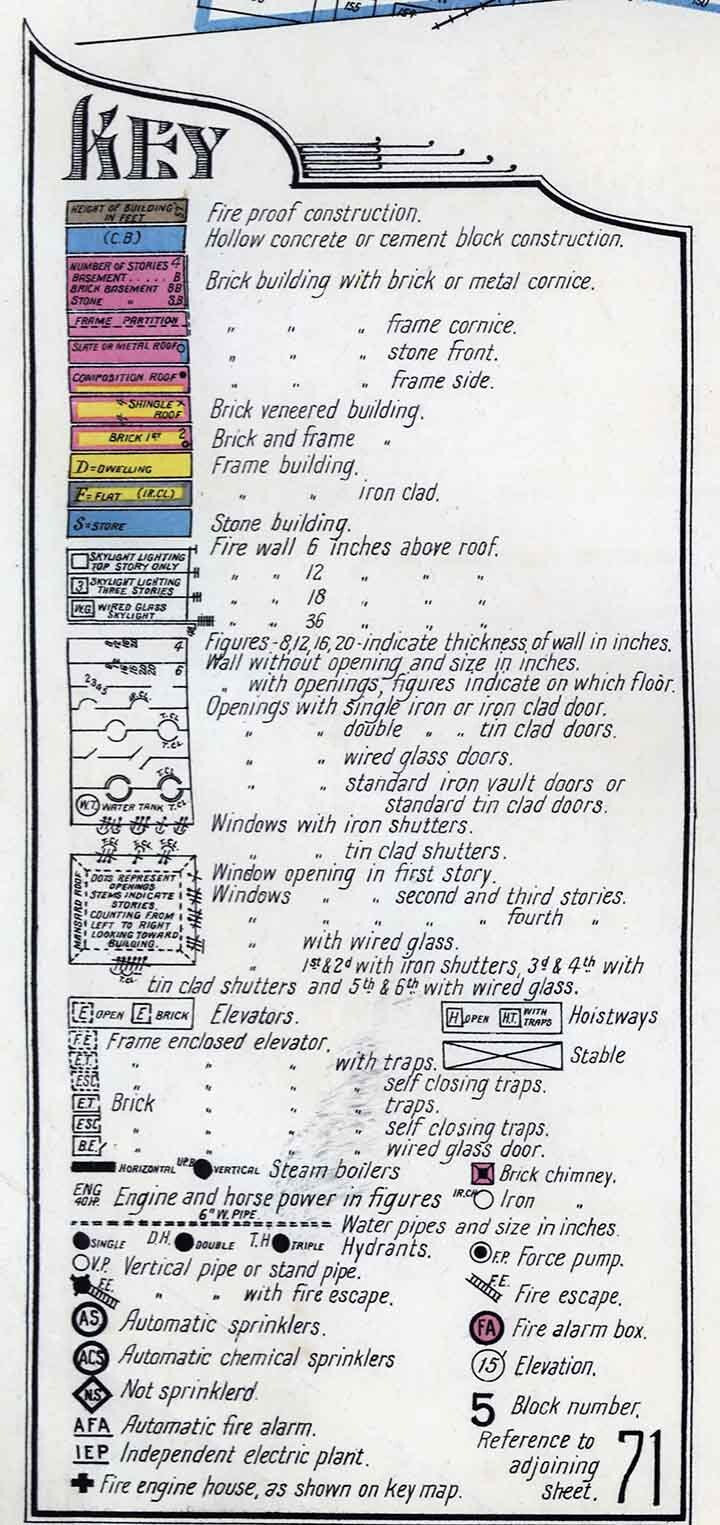 155
154
150
KEY
HEIGHT OF BUILDING IN FEET
Fire proof construction.
(C.B.)
Hollow concrete or cement block construction.
NUMBER OF STORIES 4
BASEMENT..... B
BRICK BASEMENT BB
STONE " S.B
Brick building with brick or metal cornice.
FRAME PARTITION
" " " frame cornice.
SLATE OR METAL ROOF
" " " stone front.
COMPOSITION ROOF
" " " frame side.
SHINGLE ROOF
Brick veneered building.
BRICK 1ST 2
Brick and frame "
D=DWELLING
Frame building.
F=FLAT (IR.CL)
" " iron clad.
S=STORE
Stone building.
SKYLIGHT LIGHTING TOP STORY ONLY
Fire wall 6 inches above roof.
3 SKYLIGHT LIGHTING THREE STORIES
" " 12 " " "
" " 18 " " "
W.G. WIRED GLASS SKYLIGHT
" " 36 " " "
4
Figures-8,12,16,20-indicate thickness of wall in inches.
6
Wall without opening and size in inches.
2345
" with openings, figures indicate on which floor.
Openings with single iron or iron clad door.
T.CL
" " double " " tin clad doors.
T.CL
" " wired glass doors.
T.CL
" " standard iron vault doors or
W.T. WATER TANK T.CL
standard tin clad doors.
Windows with iron shutters.
" " tin clad shutters.
MANSARD ROOF
DOTS REPRESENT
OPENINGS
STEMS INDICATE
STORIES
COUNTING FROM
LEFT TO RIGHT
LOOKING TOWARD
BUILDING.
Window opening in first story.
Windows " " second and third stories.
" " " " fourth "
" with wired glass.
T.CL
" 1st & 2d with iron shutters, 3d & 4th with
tin clad shutters and 5th & 6th with wired glass.
E OPEN E BRICK Elevators.
H OPEN H.T. WITH TRAPS Hoistways
F.E. Frame enclosed elevator.
Stable
E.T. " " " with traps.
ESC " " " " self closing traps.
ET Brick " " " traps.
ESC " " " " self closing traps.
B.E. " " " " wired glass door.
HORIZONTAL VERTICAL Steam boilers
Brick chimney.
ENG 40HP. Engine and horse power in figures
IR.CH Iron "
6" W. PIPE. Water pipes and size in inches.
SINGLE D.H. DOUBLE T.H TRIPLE Hydrants.
F.P. Force pump.
V.P. Vertical pipe or stand pipe.
F.E. " " with fire escape.
F.E. Fire escape.
AS Automatic sprinklers.
FA Fire alarm box.
ACS Automatic chemical sprinklers
15' Elevation.
N.S Not sprinklerd.
5 Block number.
AFA Automatic fire alarm.
Reference to
adjoining
sheet. 71
IEP Independent electric plant.
Fire engine house, as shown on key map.